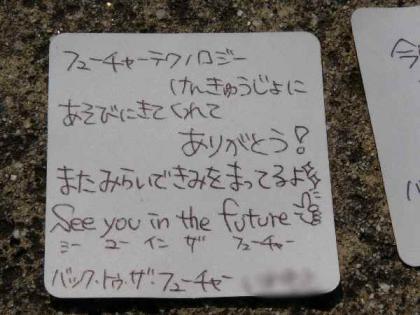 フューチャーテクノロジー
けんきゅうじょに
あそびにきてくれて
ありがとう!
またみらいできみをまってるよ
See you in the future
シー ユー イン ザ フューチャー
バック・トゥ・ザ・フューチャー
今